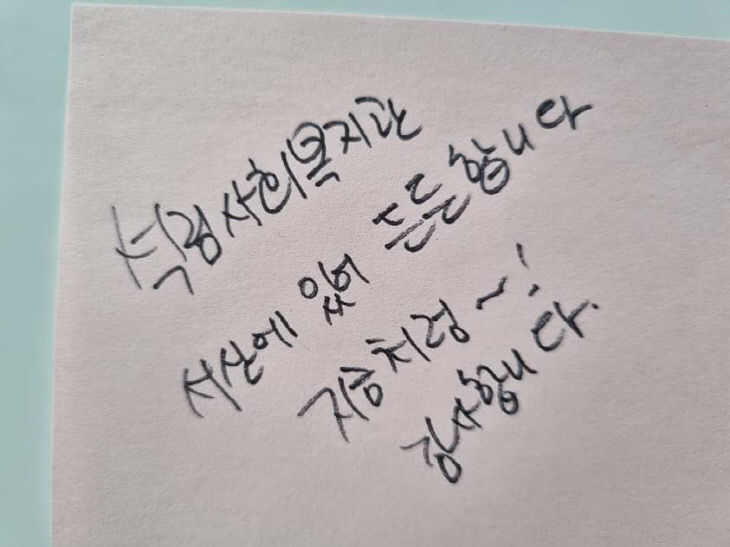 석림사회복지관
서산에 있어 든든합니다
지금처럼~!
감사합니다.